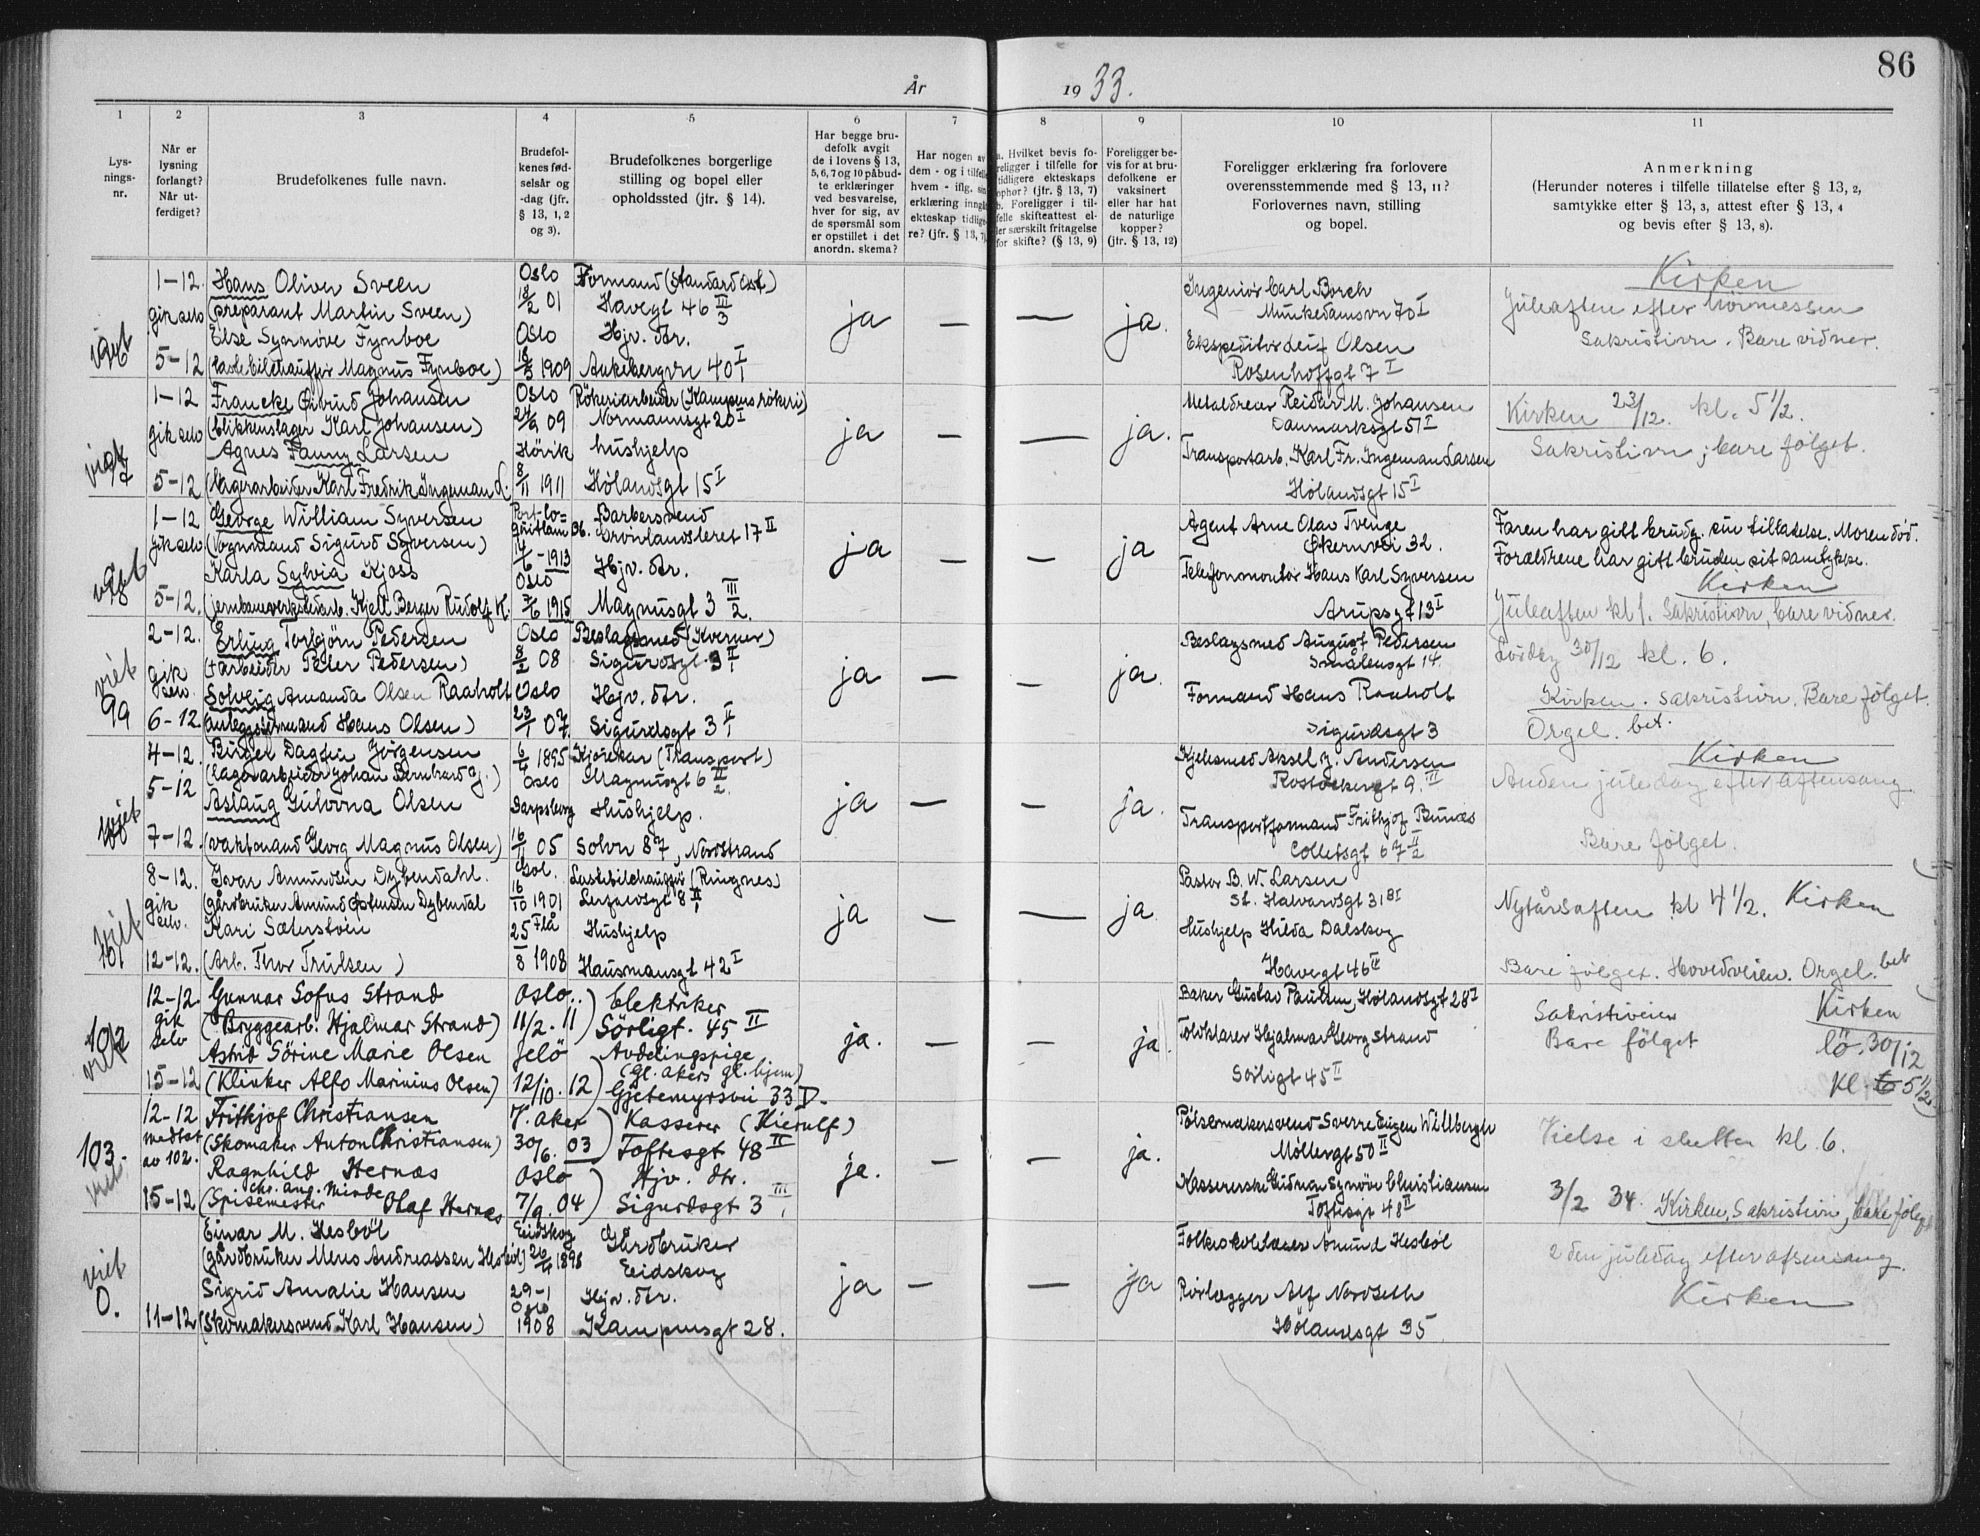 86
År 1933.
1 2 3 4 5 6 7 8 9 10 11
Lys-
nings-
nr.
Når er
lysning
forlangt?
Når ut-
ferdiget?
Brudefolkenes fulle navn.
Brudefol-
kenes fød-
selsår og
-dag (jfr.
§ 13, 1, 2
og 3).
Brudefolkenes borgerlige
stilling og bopel eller
opholdssted (jfr. § 14).
Har begge bru-
defolk avgit
de i lovens § 13,
5, 6, 7 og 10 påbud-
te erklæringer
ved besvarelse,
hver for sig, av
de spørsmål som
er opstillet i det
anordn. skema?
Har nogen av
dem - og i tilfelle
hvem - iflg. sin
erklæring inngåt
ekteskap tidlige-
re? (jfr. § 13, 7)
a. Hvilket bevis fo-
religger i tilfelle for
tidligere ekteskaps
ophør? (jfr. § 13, 7)
b. Foreligger i til-
felle skifteattest el-
ler særskilt fritagelse
for skifte? (§ 13, 9)
Foreligger be-
vis for at bru-
defolkene er
vaksinert
eller har hat
de naturlige
kopper?
(jfr. § 13, 12)
Foreligger erklæring fra forlovere
overensstemmende med § 13, 11?
Forlovernes navn, stilling
og bopel.
Anmerkning
(Herunder noteres i tilfelle tillatelse efter § 13, 2,
samtykke efter § 13, 3, attest efter § 13, 4
og bevis efter § 13, 8).
viet
1-12 Hans Oliver Sveen Oslo Formand (Standard)
gik selv (preparant Martin Sveen) 18/2 01 Havegt 46 III/3
Else Synnøve Fynboe Oslo Hjv. dtr.
5-12 (lastebilchauffør Magnus Fynboe) 18/3 1909 Ankebergvn 40 I
ja — — ja.
Ingeniør Carl Borch
Munkedamsvn 70 I
Ekspeditør Leif Olsen
Rosenhoffgt 7 I
Kirken
Juleaften efter
Sakristivn. Bare vidner.
1-12 Francke Øivind Johansen Oslo Rökeriarbeider (Kampens rökeri)
gik selv (blikkenslager Karl Johansen) 24/9 09 Normannsgt 20 I
Agnes Fanny Larsen Hövik hushjelp
5-12 (lagerarbeider Karl Fredrik Ingeman L. 8/11 1911 Hölandsgt 15 I
ja — — ja.
Metaldreier Reidar M. Johansen
Danmarksgt 51 I
Transportarb. Karl Fr. Ingeman Larsen
Hölandsgt 15 I
Kirken 23/12. kl. 5 1/2.
Sakristivn; bare fölget.
viet
1-12 George William Syversen Barbersvend
gik selv (Vognmand Sigurd Syversen) 14/6-1913 Grönlandsleret 17 II
Karla Sylvia Kjoss Oslo Hjv. dtr.
5-12. (jernbaneverkstedarb. Kjell Berger Rudolf K. 7/6 1915 Magnusgt 3 III/2.
ja — — ja
Agent Arne Olav Tvenge
Økernvei 32.
Telefonmontör Hans Karl Syversen
Arupsgt 13 I
Faren har gitt brudg. sin tilladelse. Moren död.
Foreldrene har gitt bruden sit samtykke.
Kirken
Juleaften kl 1. Sakristivn, bare vidner.
viet
99
2-12. Erling Torbjörn Pedersen Oslo Beslagsmed (Kverner)
gik selv. († arbeider Peter Pedersen) 8/2 08 Sigurdsgt. 3 II/1
Solveig Amanda Olsen Raaholt Oslo Hjv. dtr.
6-12 (anleggsformand Hans Olsen) 23/1 07. Sigurdsgt 3 II/1
ja — — ja.
Beslagsmed August Pedersen
Smålensgt 14.
Formand Hans Raaholt
Sigurdsgt 3
Lördag 30/12 kl. 6.
Kirken. Sakristivn. Bare fölget.
Orgel. bet.
4-12. Birger Dagfin Jörgensen 6/4 1895 Kjörekar (Transport)
5-12 (Lagerarbeider Johan Bernhard J.) Oslo Magnusgt 6 II/2.
Aslaug Gulovna Olsen Sarpsborg Hushjelp.
7-12. (vaktmand Georg Magnus Olsen) 16/11 05 Solvn 87, Nordstrand
ja — — ja.
Kjelesmed Aksel J. Andersen
9. III
Transportformand Frithjof Bunæs
Colletsgt 67 II/2
Kirken
Anden juledag efter aftensang.
Bare fölget.
viet
101
8-12. Ivar Amundsen Dybendahl. Gol. Lastebilchauffør (Ringnes)
gik selv. (gårdbruker Amund Östensen Dybendal 16/10 1901 8 II/1
Kari Sæterstøen 25 Flå Hushjelp
12-12. (Arb. Thor Trulsen ) 8 1908 Hausmansgt 42 I
ja — — ja.
Pastor B. W. Larsen
St. Halvardsgt 31 B I
Hushjelp Hilda Dalskog
Havegt 46 II
Nytårsaften kl 4 1/2. Kirken
Bare fölget. Hovedveien. Orgel. bet
102
viet
12-12. Gunnar Sofus Strand Oslo.. Elektriker
gik selv (Bryggearb. Hjalmar Strand) 11/2. 11 Sörligt. 45 II
Astrid Sörine Marie Olsen Jelö Avdelingspige
(gl. akers gl. hjem)
15-12 (Klinker Alfo Marinius Olsen) 12/10. 12 Gjetemyrsvei 33 D.
ja. — — ja.
Baker Gustav Paulsen, Hölandsgt 28 I
Toldklarer Hjalmar Georg Strand
Sörligt 45 II
Sakristiveien Kirken
Bare fölget lö. 30/12
kl. 5 1/2.
103.
viet
12-12 Frithjof Christiansen V. aker Kasserer (Kierulf)
medtat (Skomaker Anton Christiansen) 30/6. 03 Toftesgt 48 II
av 102. Ragnhild Hernæs Oslo Hjv. dtr.
Chr. an. Minde
15-12 (Spisemester Olaf Hernæs 7/9. 04 Sigurdsgt 3 III/1
ja. — — ja.
Pölsemakersvend Sverre Eugen Willbergh
Möllergt 50 II
Kassererske Gudrun Synöve Christiansen
Toftesgt 48 II
Vielse i slutten kl. 6.
3/2 34. Kirken, Sakristivn, bare fölget
viet
0.
Einar M. Hesböl Eidskog Gårdbruker
(gårdbruker Mens Andreassen Hesböl) 26/4 1898 Eidskog
Sigrid Amalie Hansen 29-1 Hjv. dtr.
Oslo
11-12 (Skomakersvend Karl Hansen) 1908 Kampensgt 28.
ja — — ja
Folkeskolelærer Amund Hesböl
Rörlegger Alf Nordseth
Hölandsgt 35
2den juledag efter aftensang.
Kirken